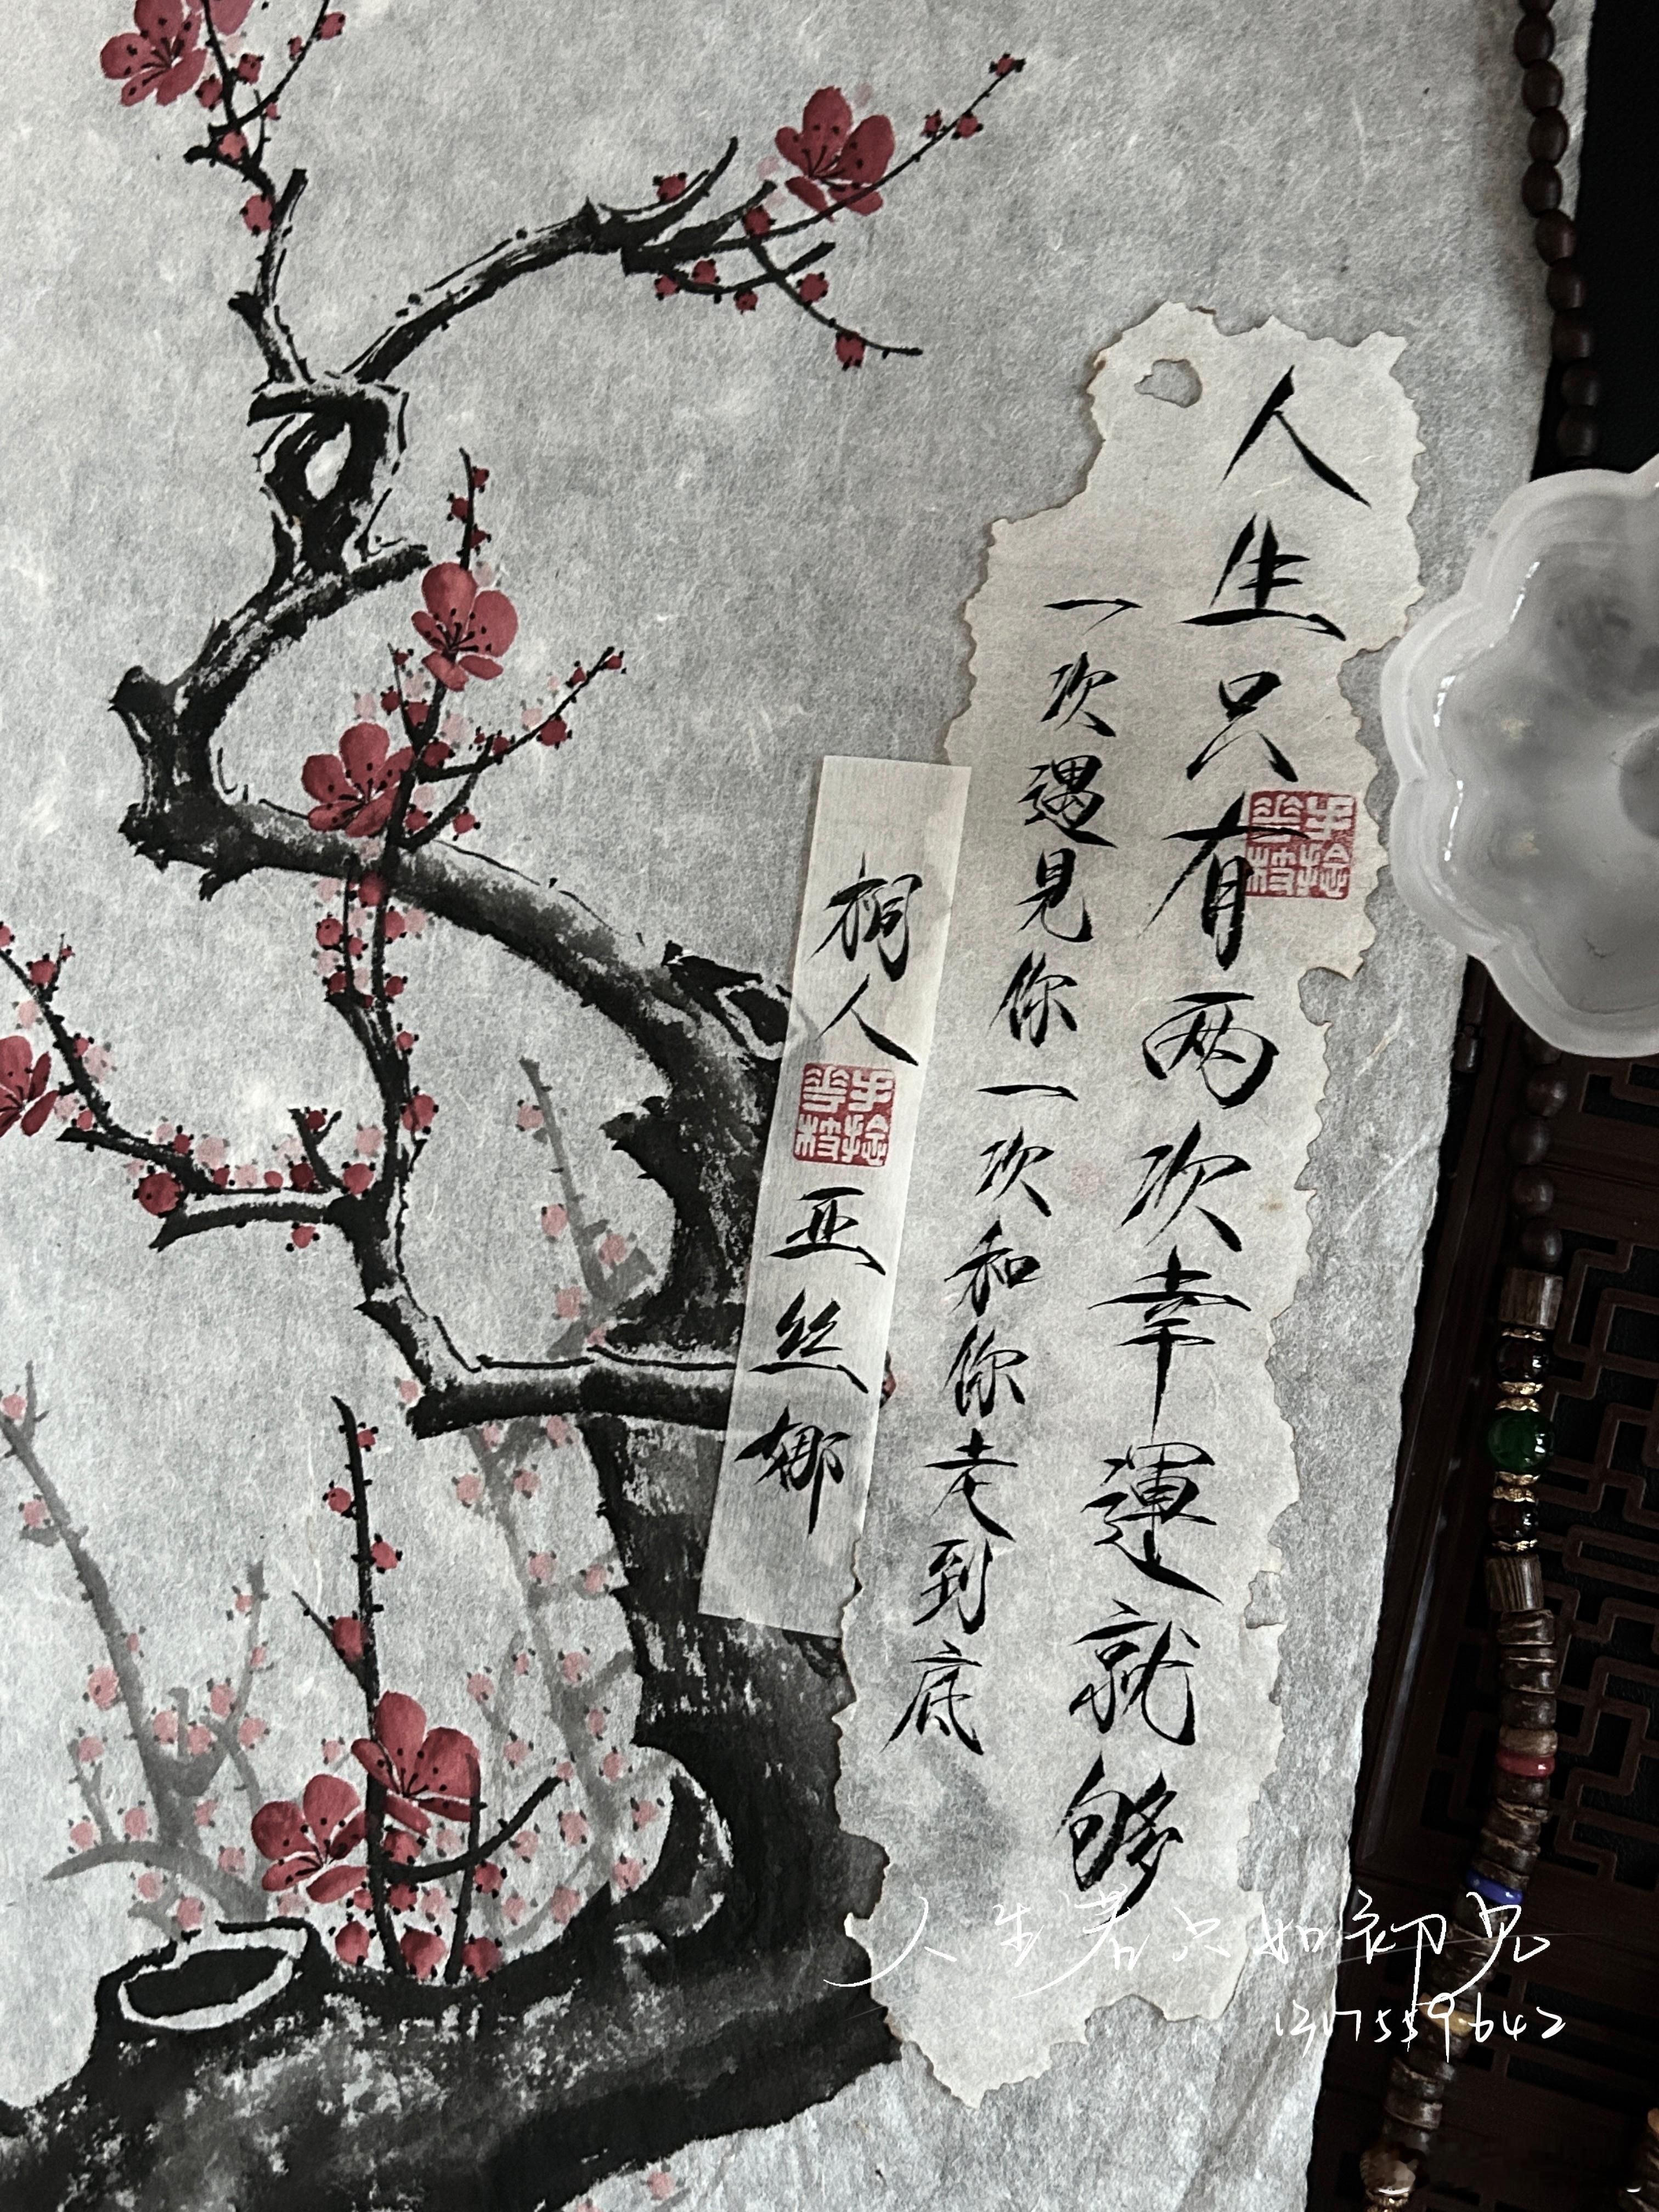 人生只有两次幸運就够
一次遇見你一次和你走到底
桐人
亚丝娜
人生若只如初见
1217559642